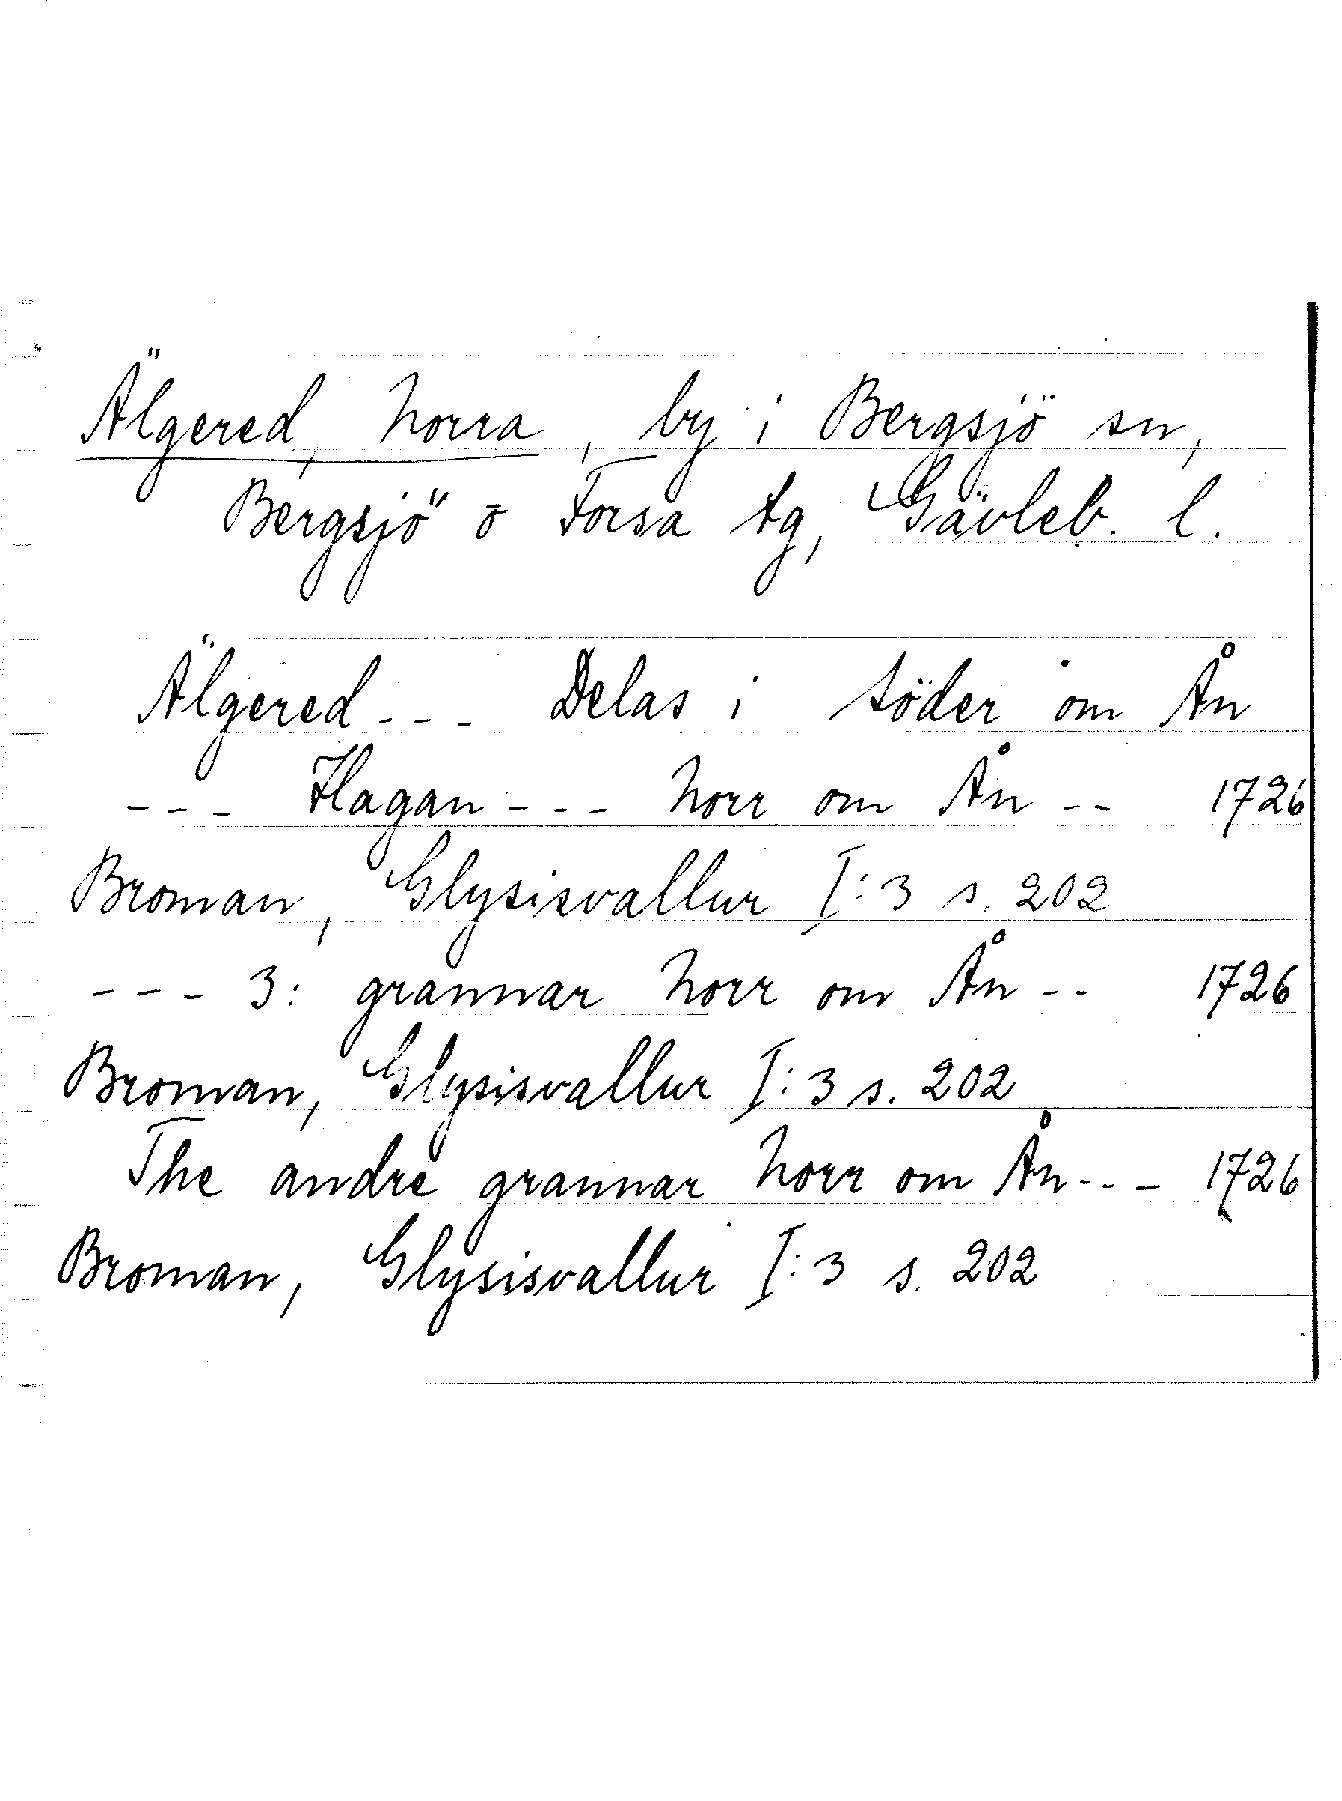 Älgered, Norra, by i Bergsjö sn,
Bergsjö o Forsa tg, Gävleb. l.
Älgered --- Delas i söder om Ån
--- Hagan --- Norr om Ån -- 1726
Broman, Glysisvallur I:3 s. 202
--- 3: grannar Norr om Ån -- 1726
Broman, Glysisvallur I:3 s. 202
The andre grannar Norr om Ån --- 1726
Broman, Glysisvallur I:3 s. 202